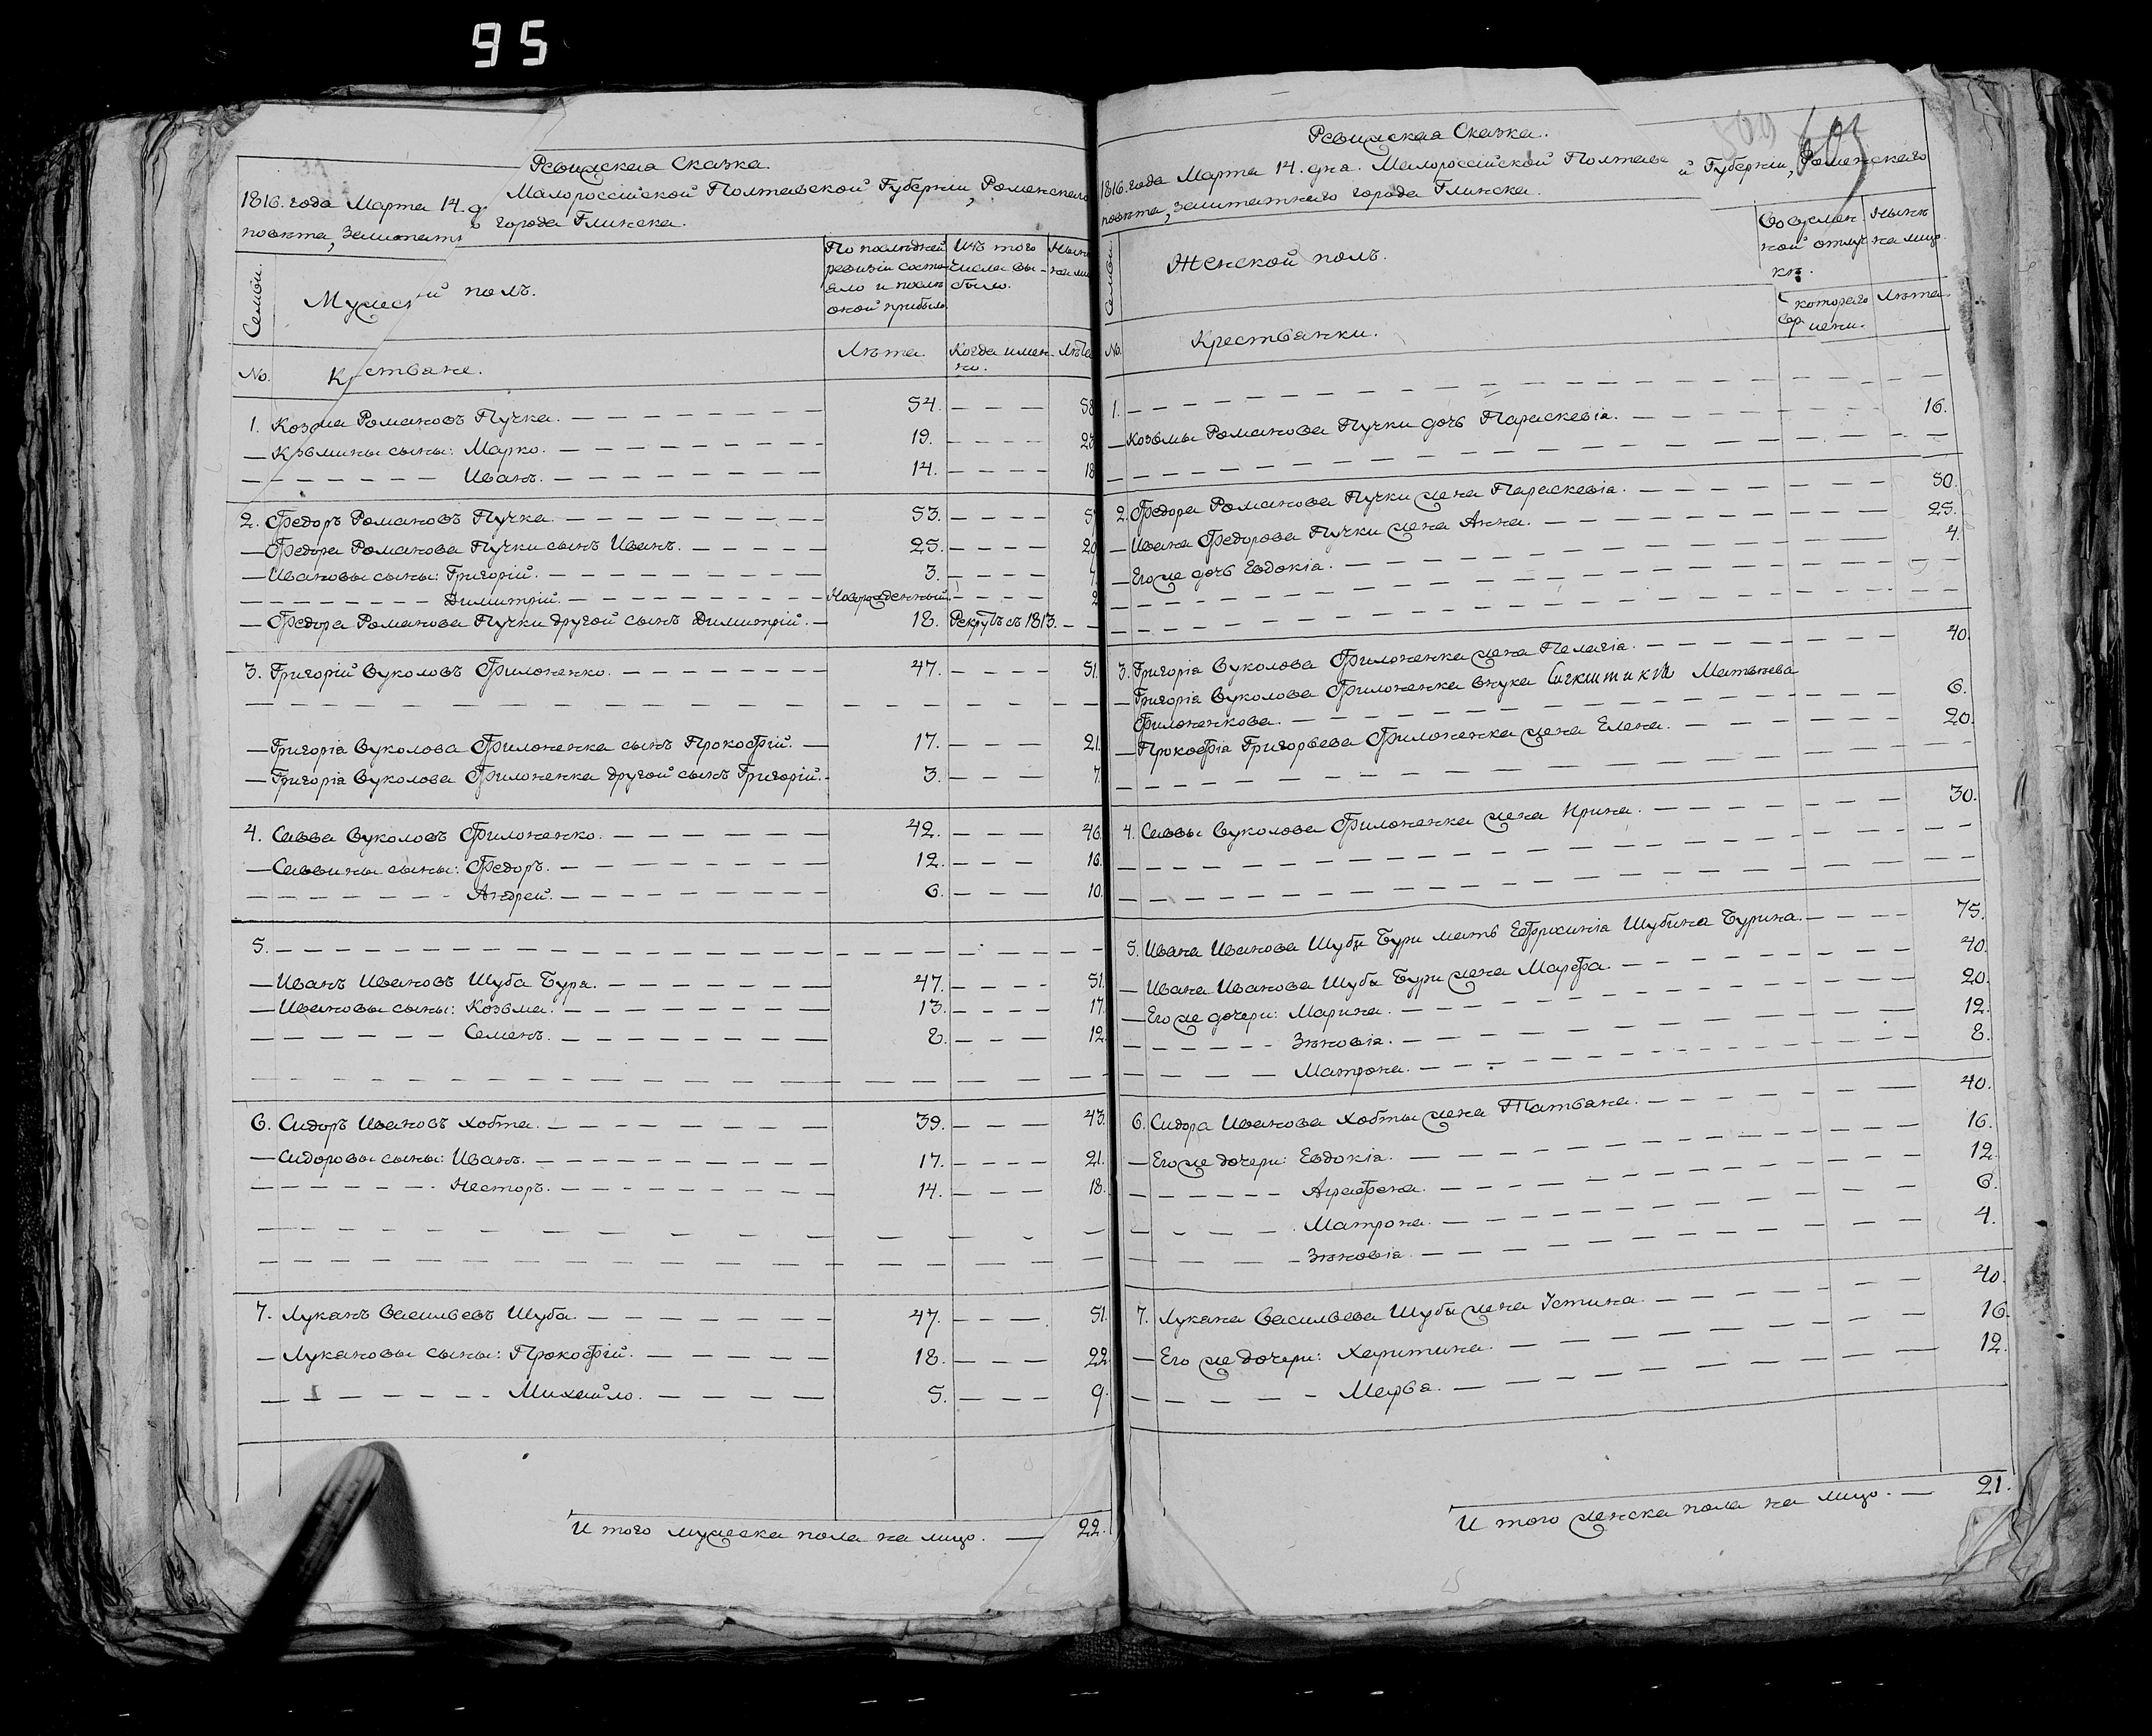 95
Ревижская Сказка.
1816. года Марта 14. д Малороссійской Полтавской Губерніи, Роменскаго
повѣта, Заштатн города Глинска.
Семьи.
Мужес й полъ.
По послѣдней ревизіи состояло и послѣ оной прибыло
Изъ того числа выбыло.
Нынѣ на ли
No. К стьяне.
Лѣта.
Когда именно.
Лѣта
1. Козма Романовъ Пучка. 54. 58
Козмины сыны: Марко. 19. 23
Иванъ. 14. 18
2. Федоръ Романовъ Пучка. 53. 5
Федора Романова Пучки сынъ Иванъ. 25. 29
Ивановы сыны: Григорій. 3. 7.
Димитрій. Новорожденный. 2
Федора Романова Пучки другой сынъ Димитрій. 18. Рекрутъ съ 1813.
3. Григорій Вуколовъ Филоненко. 47. 51.
Григорія Вуколова Филоненка сынъ Прокофій. 17. 21.
Григорія Вуколова Филоненка другой сынъ Григорій. 3. 7.
4. Савва Вуколовъ Филоненко. 42. 46.
Саввины сыны: Федоръ. 12. 16.
Андрей. 6. 10.
5.
Иванъ Ивановъ Шуба Бура. 47. 51.
Ивановы сыны: Козьма. 13. 17.
Семенъ. 8. 12.
6. Сидоръ Ивановъ Хобта. 39. 43.
Сидоровы сыны: Иванъ. 17. 21.
Несторъ. 14. 18.
7. Луканъ Васильевъ Шуба. 47. 51.
Лукановы сыны: Прокофій. 18. 22.
Михайло. 5. 9.
И того мужеска пола на лицо. 22.
603
Ревижская Сказка.
1816. года Марта 14. дня. Малороссійской Полтавс й Губерніи, Роменскаго
повѣта, заштатнаго города Глинска.
Семьи.
Женской полъ.
Во времянной отлучкѣ.
Нынѣ на лицо.
No. Крестьянки.
Съ котораго времени.
Лѣта.
1.
Козьмы Романова Пучки дочь Параскевіа. 16.
2. Федора Романова Пучки жена Параскевіа. 50.
Ивана Федорова Пучки жена Анна. 25.
Его же дочь Евдокіа. 4.
3. Григоріа Вуколова Филоненка жена Пелагіа. 40.
Григоріа Вуколова Филоненка внука Матвѣева
Филоненкова. 6.
Прокофіа Григорьева Филоненка жена Елена. 20.
4. Саввы Вуколова Филоненка жена Ирина. 30.
5. Ивана Иванова Шубы Буры мать Ефросиніа Шубина Бурина. 75.
Ивана Иванова Шубы Буры жена Марфа. 40.
Его же дочери: Марина. 20.
Зѣновіа. 12.
Матрона. 8.
6. Сидора Иванова Хобты жена Татьяна. 40.
Его же дочери: Евдокіа. 16.
Аграфена. 12.
Матрона. 6.
Зѣновіа. 4.
7. Лукана Васильева Шубы жена Устина. 40.
Его же дочери: Харитина. 16.
Марья. 12.
И того женска пола на лицо. 21.